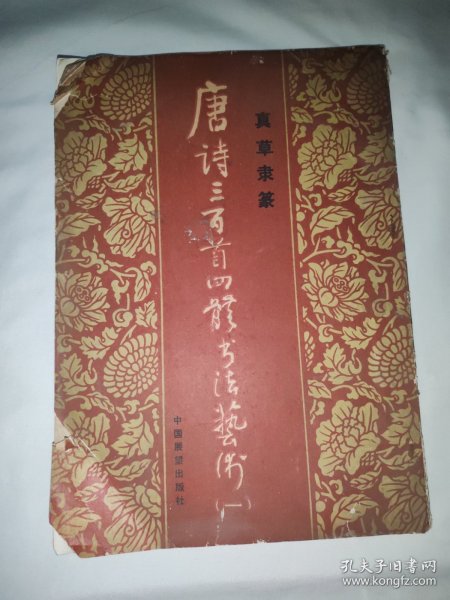 真草隶篆
唐诗三百首四體书法藝術(一)
中国展望出版社
孔夫子旧书网
www.kongfz.com